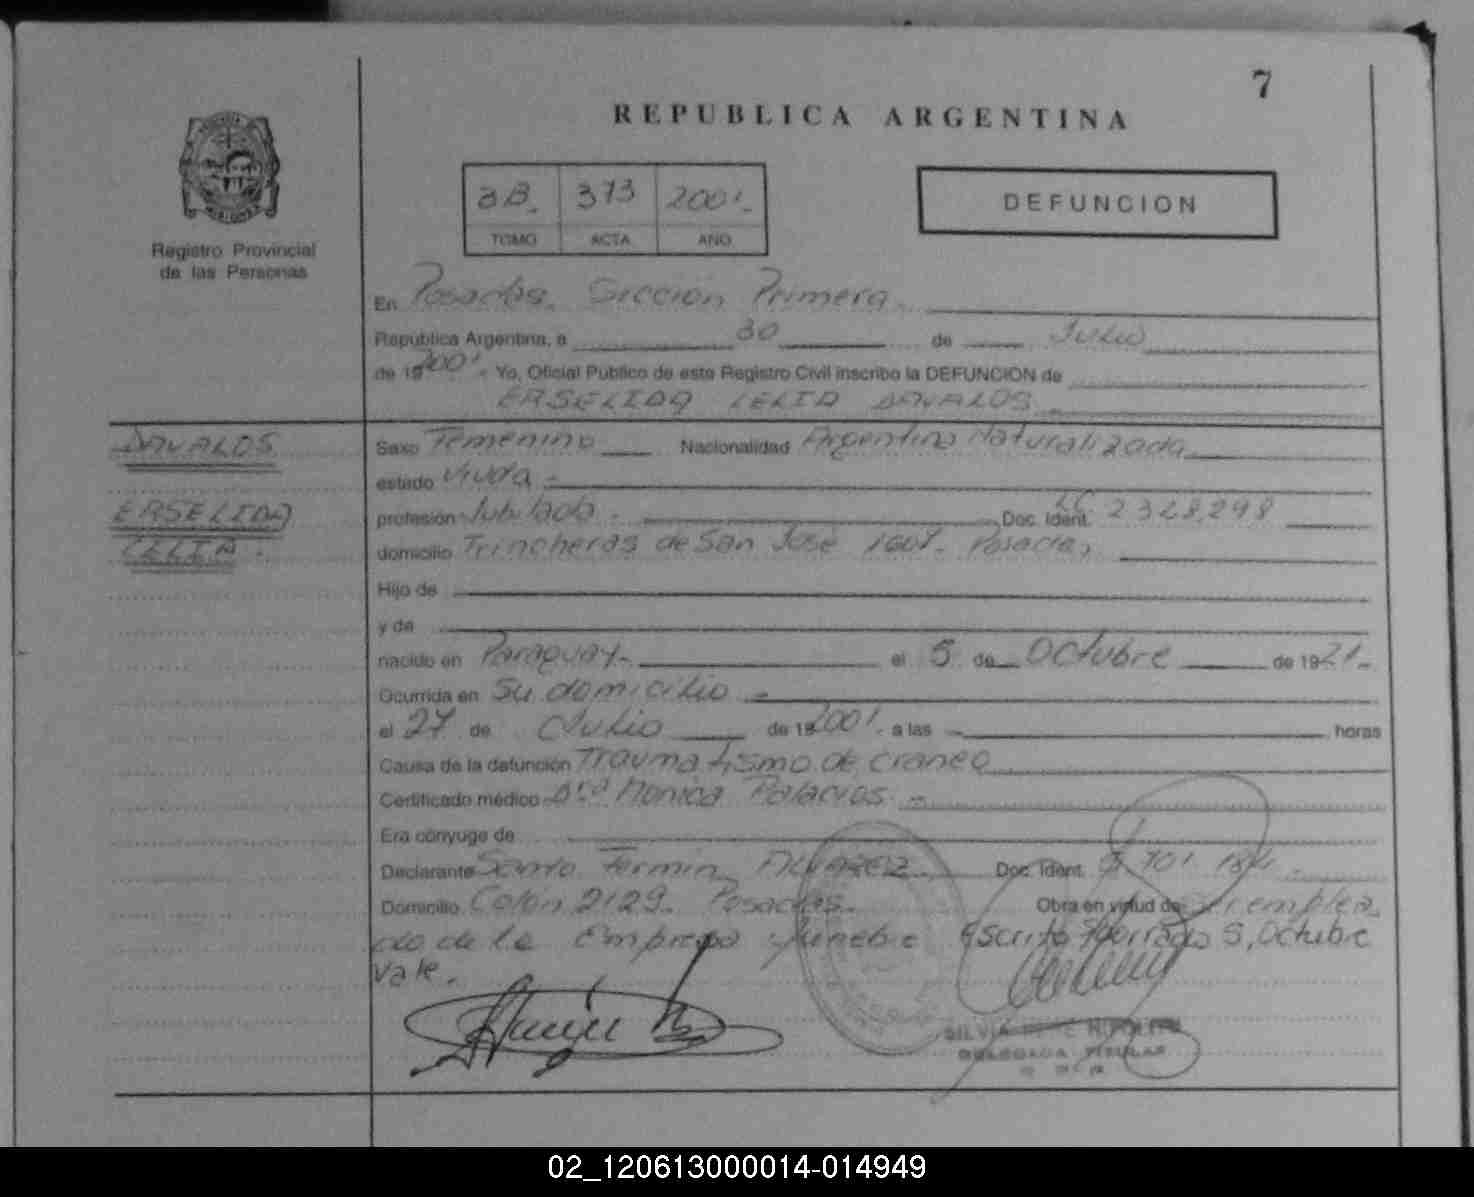 7
REPUBLICA ARGENTINA
Registro Provincial
de las Personas
3B. 373 2001.-
TOMO ACTA AÑO
DEFUNCION
En Posadas. Sección Primera.
República Argentina, a 30 de Julio
de 192001.- Yo, Oficial Público de este Registro Civil inscribo la DEFUNCION de
ERSELIDA CELIA DAVALOS
DAVALOS
ERSELIDA
CELIA.
Sexo Femenino Nacionalidad Argentina Naturalizada
estado Viuda -
profesión Jubilada. Doc. Ident. LC 2328.298
domicilio Trincheras de San José 1607. Posadas
Hijo de
y de
nacido en Paraguay.- el 5 de Octubre de 1921.-
Ocurrida en Su domicilio -
el 27 de Julio de 192001. a las horas
Causa de la defunción Traumatismo de craneo
Certificado médico Dra Monica Palacios. -
Era cónyuge de
Declarante Santo Fermin ALVAREZ. Doc. Ident. 184
Domicilio Colón 2129. Posadas. Obra en virtud de Ser emplea
do de la Empresa fúnebre Escrito Borrado 5, Octubre
Vale.
SILVIA HIPOLITO
DELEGADA TITULAR
02_120613000014-014949